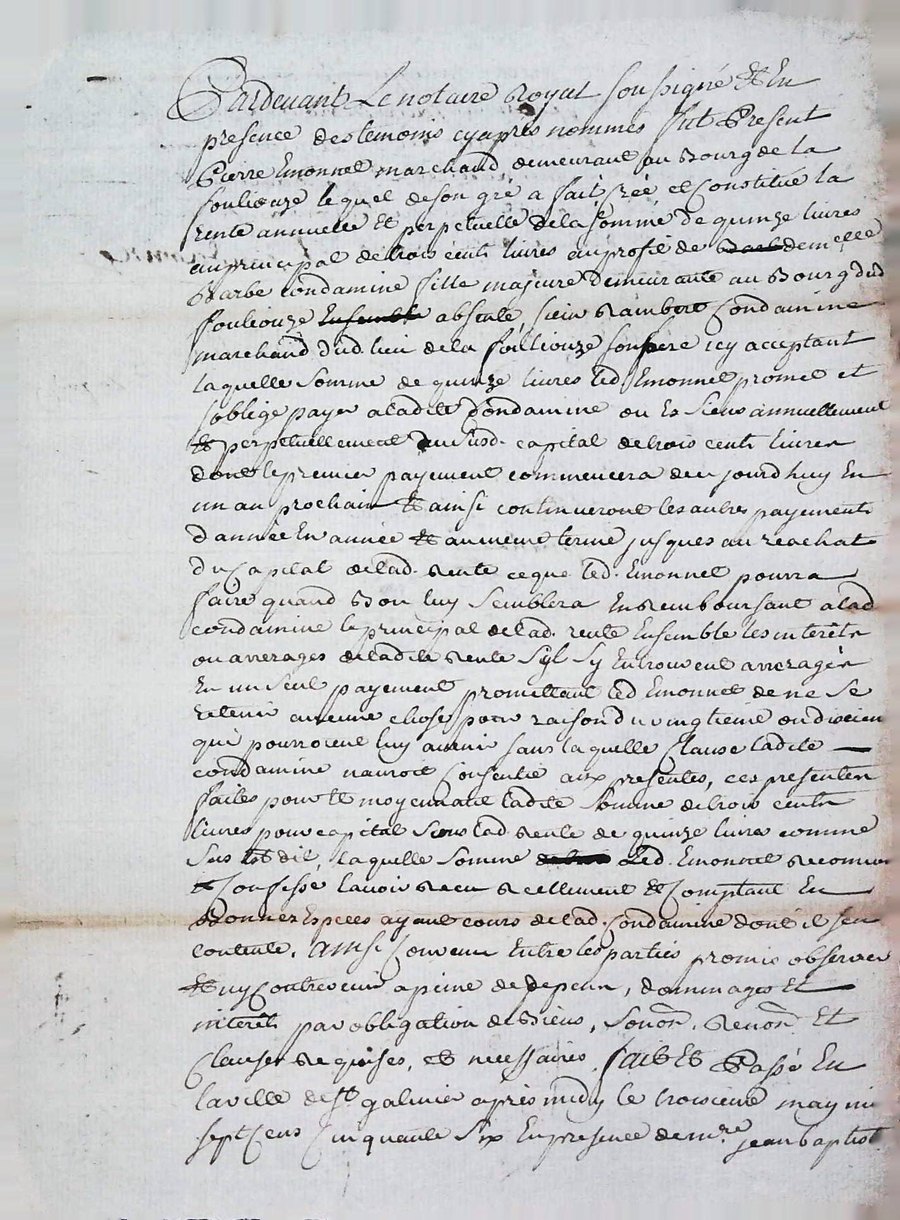 Pardevant Le notaire Royal soussigné Et En
presence des temoins cy apres nommés fut Present
Pierre Emonnet marchand, demeurant au Bourg de la
foulieuze lequel de son gré a fait créé et Constitué la
rente annuelle Et perpetuelle de la somme de quinze livres
au principal de trois cents livres au profit de demelle
Barbe condamine fille majeure demeurante au Bourg dud
foulieuze absente, sieur Rambert Condamine
marchand dud. lieu de la foulieuze son pere icy acceptant
laquelle somme de quinze livres led. Emonnet promet et
s'oblige payer a ladite Condamine ou Es siens annuellement
et perpetuellement du susd. capital de trois cents livres
dont le premier payement commencera de ce jourd'huy En
un an prochain Et ainsi continueront les autres payements
d'année En année Et au meme terme jusques au reachat
du Capital de lad. Rente ce que led. Emonnet pourra
faire quand Bon luy semblera En Remboursant a lad
condamine le principal de lad. rente Ensemble les interêts
ou arrerages de ladite Rente s'yl s'y En trouvent arreragés
En un seul payement promettant led Emonnet de ne se
retenir aucune chose pour raison du vingtieme ou dixieme
qui pourroient luy avenir sans laquelle Clause ladite
condamine n'auroit Consentie aux presentes, ces presentes
faites pour et moyennant ladite somme de trois cents
livres pour capital sous lad. Rente de quinze livres comme
sus est dit, laquelle somme led. Emonnet Reconnu
et Confessé l'avoir Recu Reellement Et Comptant En
Bonnes Especes ayant cours de lad. Condamine dont il s'en
contente. Ainsi Convenu Entre les parties promis observer
Et n'y Contrevenir a peine de depens, dommages Et
interêts par obligation de Biens, Renon. Et
Clauses Requises, et necessaires. fait Et Passé En
la ville de St. galmier après midy le troisieme may mil
sept Cens Cinquante six En presence de mre. jean baptist